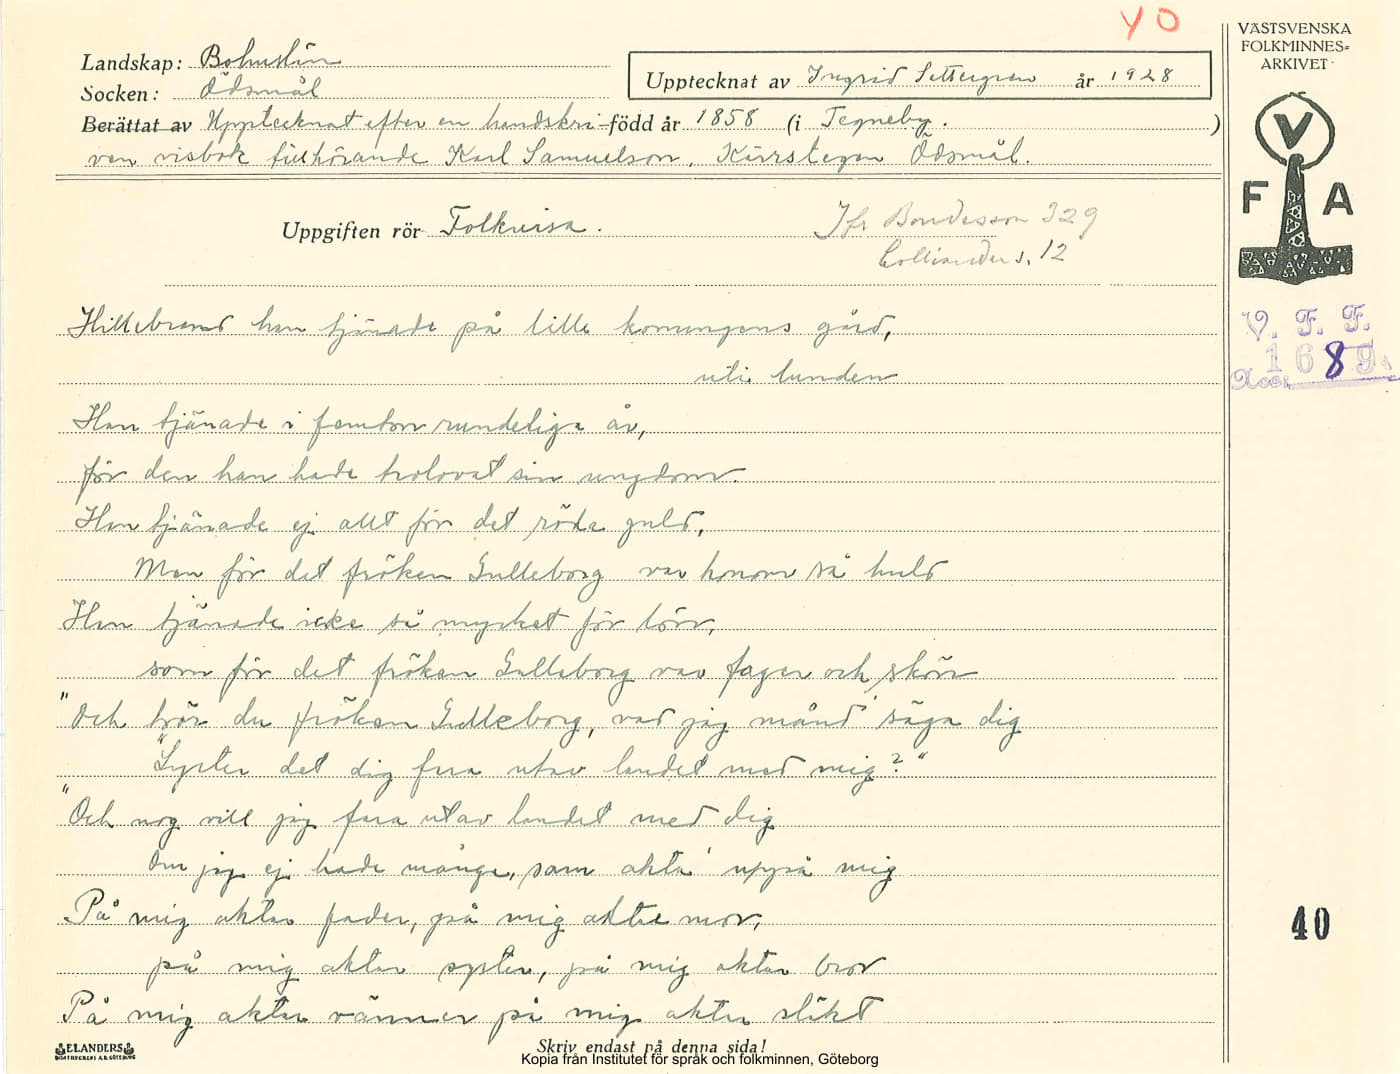 40
VÄSTSVENSKA
FOLKMINNES=
ARKIVET
Landskap: Bohuslän
Socken: Ödsmål
Upptecknat av Ingrid Settergren år 1928
Berättat av Upptecknat efter en handskri- född år 1858 (i Tegneby.)
ven visbok tillhörande Karl Samuelson, Kärrstegen Ödsmål.
V
F A
Uppgiften rör Folkvisa.
Jfr Bondeson 329
Collianders s. 12
V. F. F.
1689
Acc.
Hillebrand han tjänade på lille konungens gård,
uti lunden
Han tjänade i femton rundeliga år,
för den han hade trolovat sin ungdom.
Han tjänade ej allt för det röda guld,
Men för det fröken Gulleborg var honom så huld
Han tjänade icke så mycket för lön,
som för det fröken Gulleborg var fager och skön
"Och hör du fröken Gulleborg, vad jag månd' säga dig
"Lyster det dig fara utav landet med mig?"
"Och nog vill jag fara utav landet med dig
Om jag ej hade många, som akta' uppå mig
På mig aktar fader, på mig aktar mor,
på mig aktar syster, på mig aktar bror
På mig aktar vänner på mig aktar släkt
40
ELANDERS
BOKTRYCKERI A.B. GÖTEBORG
Skriv endast på denna sida!
Kopia från Institutet för språk och folkminnen, Göteborg